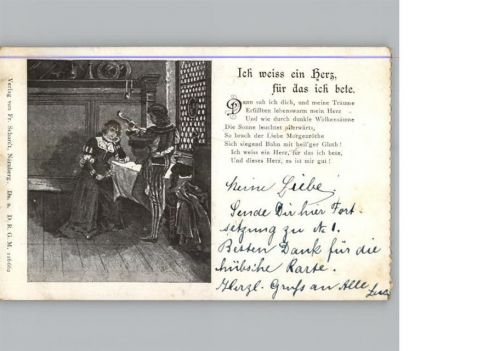 Ich weiss ein Herz,
für das ich bete.
Dann sah ich dich, und meine Träume
Erfüllten lebenswarm mein Herz
Und wie durch dunkle Wolkensäume
Die Sonne leuchtet
So brach der Liebe Morgenröthe
Sich siegend Bahn mit heil'ger Gluth!
Ich weiss ein Herz, für das ich bete,
Und dieses Herz, es ist mir gut!
Meine Liebe!
Sende Dir hier Fort-
setzung zu № 1.
Besten Dank für die
hübsche Karte.
Herzl. Gruß an Alle
Verlag von Fr. Schardt, Nürnberg. D. R. G. M.